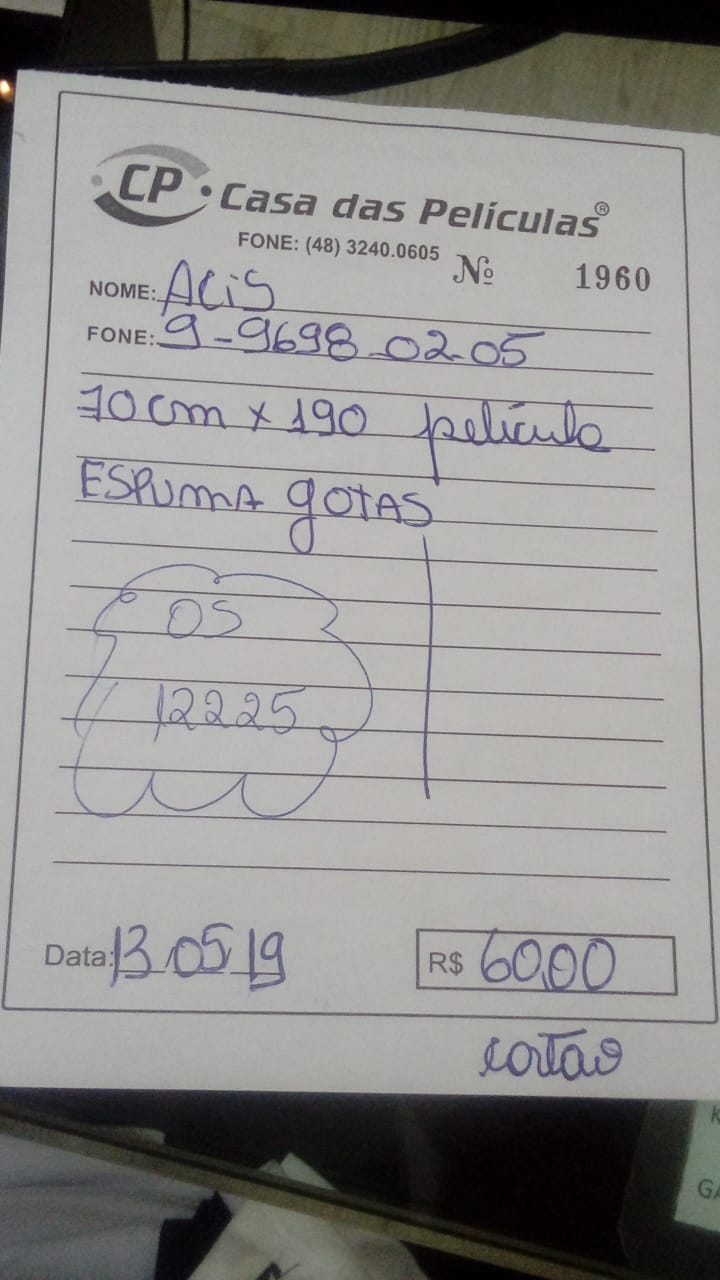 CP · Casa das Películas®
FONE: (48) 3240.0605 Nº 1960
NOME: Acis
FONE: 9-9698-02-05
70cm x 190 película
ESPUMA gotas
OS
12225
Data: 13.05.19 R$ 60,00
cartão
K
GA